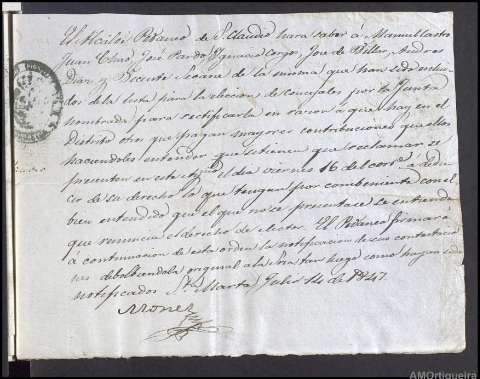 El Alcalde Pedaneo de S. Claudio hara saber á Manuel Castro
Juan Chao José Pardo Ygnacio Corgo, José de Diller, Andres
Diaz y Vicente Seoane de la misma que han sido eslui-
dos de la lista para la eleccion de concejales por la Junta
nombrada para rectificarla en razon á que hay en el
Distrito otros que pagan mayores contribuciones que ellos
haciendoles entender que si tienen que reclamar se
presenten en este Ayunto el dia viernes 16 del corrte á dedu-
cir de su derecho lo que tengan por combeniente con el
bien entendido que el que no se presentace se entiende
que renuncia el derecho de elector. El Pedaneo firmará
á continuacion de esta orden la notificacion de sus contestacio
nes debolbiendola original a la Sria tan luego como hayan sido
notificados. Sta. Marta Julio 14 de 1847
AMOrtigueira